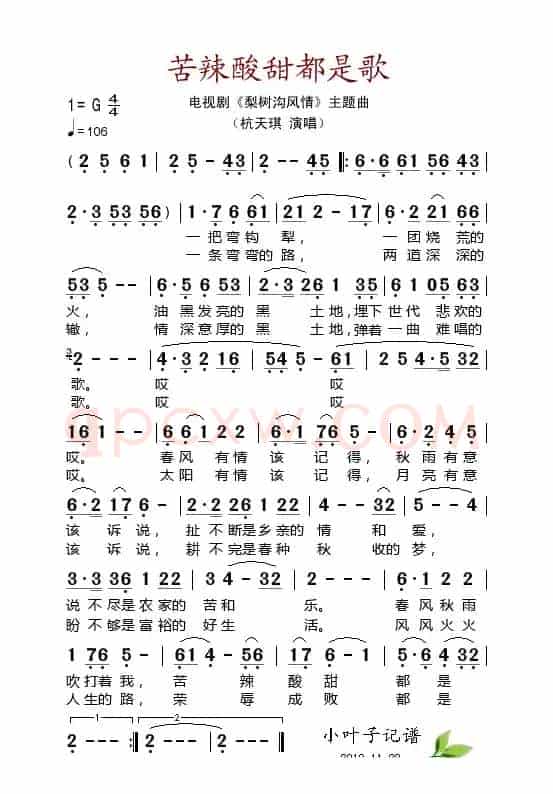 苦辣酸甜都是歌
1= G 4/4
电视剧《梨树沟风情》主题曲
♩=106
（杭天琪 演唱）
( 2 5 6 1 | 2 5 - 43 | 2 - - 45 ‖: 6·6 61 56 43 |
2·3 53 56 ) | 1·7 6 61 | 21 2 - 17 | 6·2 21 66 |
一把弯钩 犁， 一团烧 荒的
一条弯弯的 路， 两道深 深的
53 5 - - | 6·5 6 53 | 2·3 26 1 35 | 6 1 05 63 |
火， 油黑发亮的 黑 土地，埋下世代 悲欢的
辙， 情深意厚的 黑 土地，弹着一曲 难唱的
2 - - | 4·3 2 16 | 54 5 - 61 | 2 5 4·5 32 |
歌。 哎 哎
歌。 哎 哎
qpcxw.COM
161 - - | 66 1 22 | 6·1 76 5 - | 6·2 4 5 |
哎。 春风 有情 该 记 得， 秋雨有意
哎。 太阳 有情 该 记 得， 月亮有意
6·2 17 6 - | 2·2 26 12 34 | 3 - 2 4 | 5 - - - |
该 诉 说， 扯 不断是乡亲的 情 和 爱，
该 诉 说， 耕 不完是春种 秋 收的 梦，
3·3 36 1 22 | 3 4 - 32 | 2 - - - | 6·1 2 2 |
说 不尽是农家的 苦和 乐。 春 风秋雨
盼 不够是富裕的 好生 活。 风 风火火
1 76 5 - | 61 4 - 56 | 1 - 2 16 | 5·6 4 32 |
吹打着我， 苦 辣 酸 甜 都 是
人生的路， 荣 辱 成败 都 是
1 2
2 - - - :‖ 2 - - | 2 - - - ‖
小叶子记谱